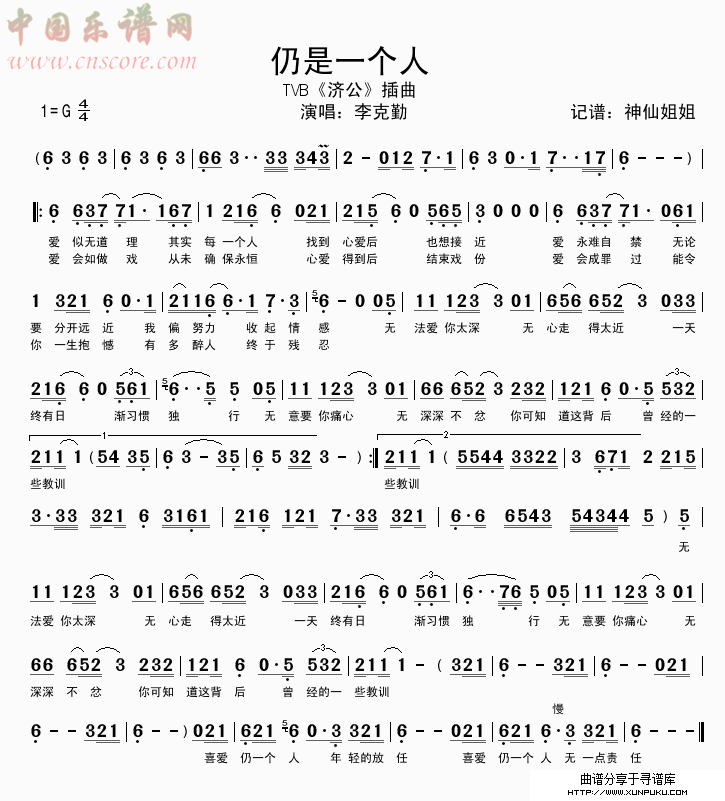 中国乐谱网
www.cnscore.com
仍是一个人
TVB《济公》插曲
演唱：李克勤
1=G 4/4
记谱：神仙姐姐
(6 3 6 3 | 6 3 6 3 | 66 3·· 33 343 | 2 - 012 7·1 | 6 3 0·1 7··17 | 6 - - - )
‖: 6 637 71· 167 | 1 216 6 021 | 215 6 0 565 | 3 0 0 0 | 6 637 71· 061 |
爱 似无道 理 其实 每 一个人 找到 心爱后 也想接 近 爱 永难自 禁 无论
爱 会如做 戏 从未 确 保永恒 心爱 得到后 结束戏 份 爱 会成罪 过 能令
1 321 6 0·1 | 2116 6·1 7·3 | 5 6 - 0 05 | 11 123 3 01 | 656 652 3 033 |
要 分开远 近 我 偏 努力 收 起 情 感 无 法爱 你太深 无 心走 得太近 一天
你 一生抱 憾 有 多 醉人 终 于 残 忍
216 6 0 561 3 | 5 6··5 5 05 | 11 123 3 01 | 66 652 3 232 | 121 6 0·5 532 3 |
终有日 渐习惯 独 行 无 意要 你痛心 无 深深 不 忿 你可知 道这背 后 曾 经的一
1
2
211 1 (54 35 | 6 3 - 35 | 6 5 32 3 - ) :‖ 211 1 ( 5544 3322 | 3 671 2 215 |
些教训 些教训
3·33 321 6 3161 | 216 121 7·33 321 | 6·6 6543 54344 5 ) 5 |
无
11 123 3 01 | 656 652 3 033 | 216 6 0 561 3 | 6··76 5 05 | 11 123 3 01 |
法爱 你太深 无 心走 得太近 一天 终有日 渐习惯 独 行 无 意要 你痛心 无
66 652 3 232 | 121 6 0·5 532 3 | 211 1 - (321 | 6 - - 321 | 6 - - 021 |
深深 不 忿 你可知 道这背 后 曾 经的一 些教训
慢
6 - - 321 | 6 - - ) 021 | 621 5 6 0·3 321 | 6 - - 021 | 621 6·3 321 | 6 - - - ‖
喜爱 仍一个 人 年 轻的放 任 喜爱 仍一个 人 无 一点责 任
曲谱分享于寻谱库
HTTP://WWW.XUNPUKU.COM